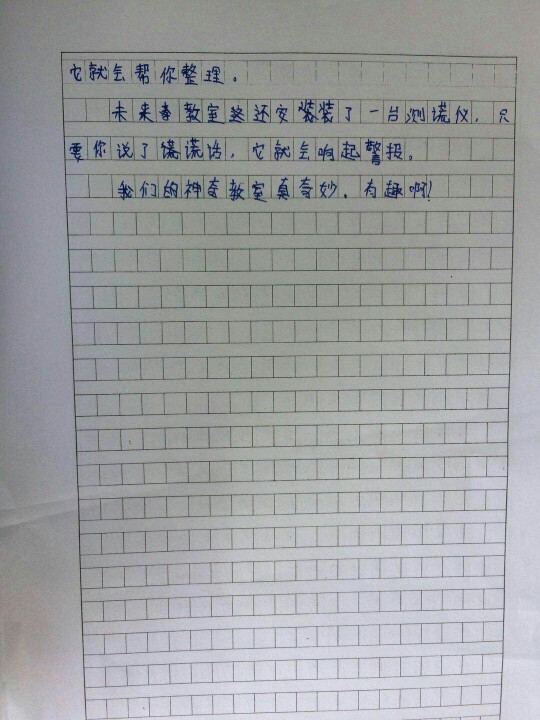 它就会帮你整理。
未来奇教室这还安装装了一台测谎仪，只
要你说了谎谎话，它就会响起警报。
我们的神奇教室真奇妙、有趣啊！